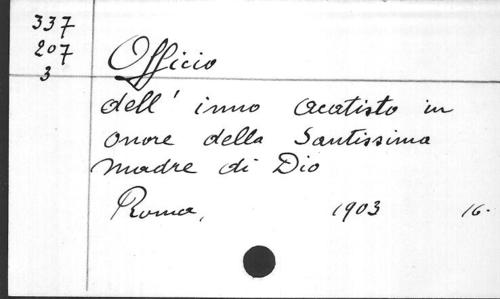 337
207
3
Officio
dell' inno acatisto in
onore della Santissima
Madre di Dio
Roma, 1903 16.